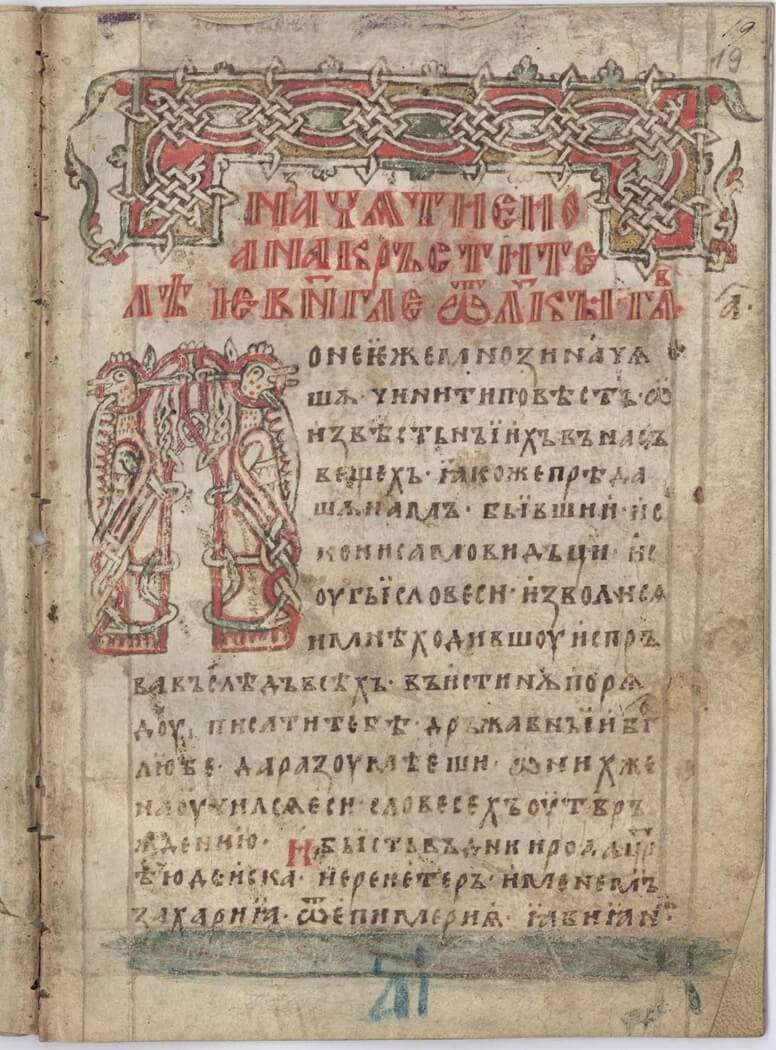 19
19
НАЧѦТИЕ ИО
АНА КРЪСТИТЕ
ЛѢ І ЕВН҃ГЛЕ Ѿ ЛꙊКЫ ГЛ҃В
а҃·
Понеіеже мнози начѧ
шѧ· чинити повѣсть· ѡ
извѣстьныихъ въ насъ
вещехъ· ꙗкоже прѣда
шѧ намъ· бывшии ис
кони самовидьци· ис
лоугы словеси· изволисѧ
и мнѣ ходившоу испръ
ва въслѣдъ всѣхъ· въ истинѫ порѧ
доу, писати тебѣ· дръжавныи б҃го
любе· да разоумѣеши· ѡ нихже
наоучилсѧ еси· словесехъ оутвръ
ждению· И бысть въ дн҃и ирода цр҃ѣ
ѣ июдеиска· иереи етеръ· именемъ
захариꙗ· ѿ епимериѧ· ꙗвиꙗн